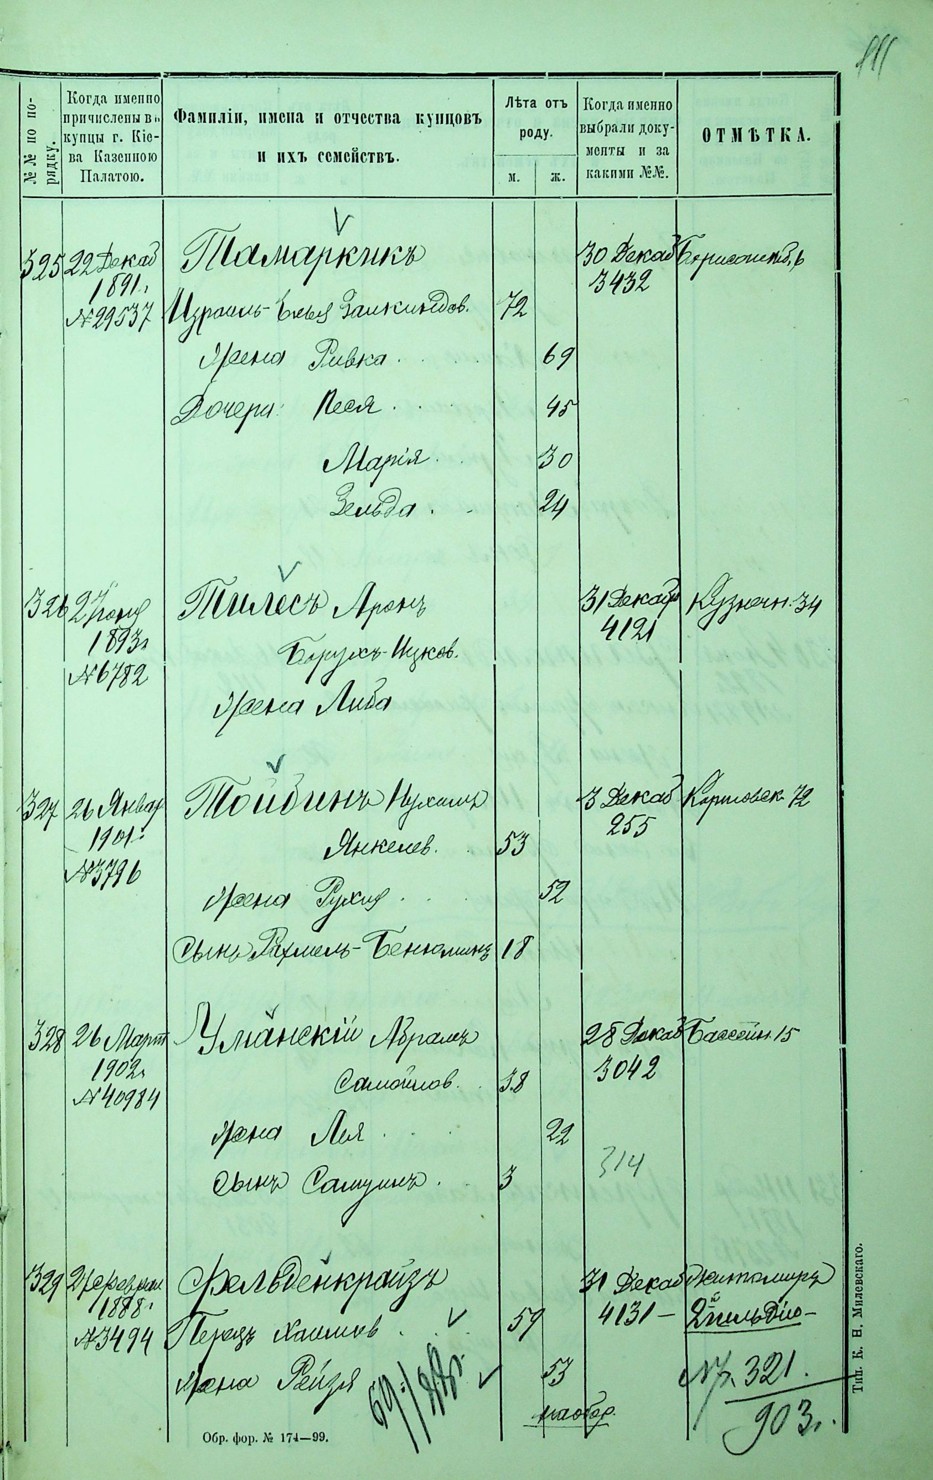 111
№№ по по-
рядку.
Когда именно
причислены въ
купцы г. Кіе-
ва Казенною
Палатою.
Фамиліи, имена и отчества купцовъ
и ихъ семействъ.
Лѣта отъ
роду.
м. ж.
Когда именно
выбрали доку-
менты и за
какими №№.
ОТМѢТКА.
325 22 Декаб Тамаркинъ 30 Декаб
1891г. 3432
№29537 Израиль-Эльья Залкиндов. 72
Жена Ривка 69
Дочери: Песя 45
Марія 30
Зельда 24
326 27 Тилесъ Аронъ 31 Декабр Кузнечн. 34
1893г. 4121
№6782 Борухъ-Ицков.
Жена Либа
327 26 Январ Тойбинъ Нухимъ 3 Декаб Кириловск 72
1901г. 255
№3796 Янкелев. 53
Жена Рухля 52
Сынъ Рахмель-Бенюминъ 18
328 26 Март Уманскій Абрамъ 28 Декаб Бассейн. 15
1902г. 3042
№40984 Самойлов. 38
Жена Лея 22
314
Сынъ Самуилъ. 3
329 Феврал Фельденкрайзъ 31 Декаб Житомиръ
1888г. 4131 — 2й гильдіи —
№3494 Перецъ Хаимов 59
Жена Рейзя 53
№ 321.
903г.
Обр. фор. № 174—99.
Тип. К. Н. Милевскаго.